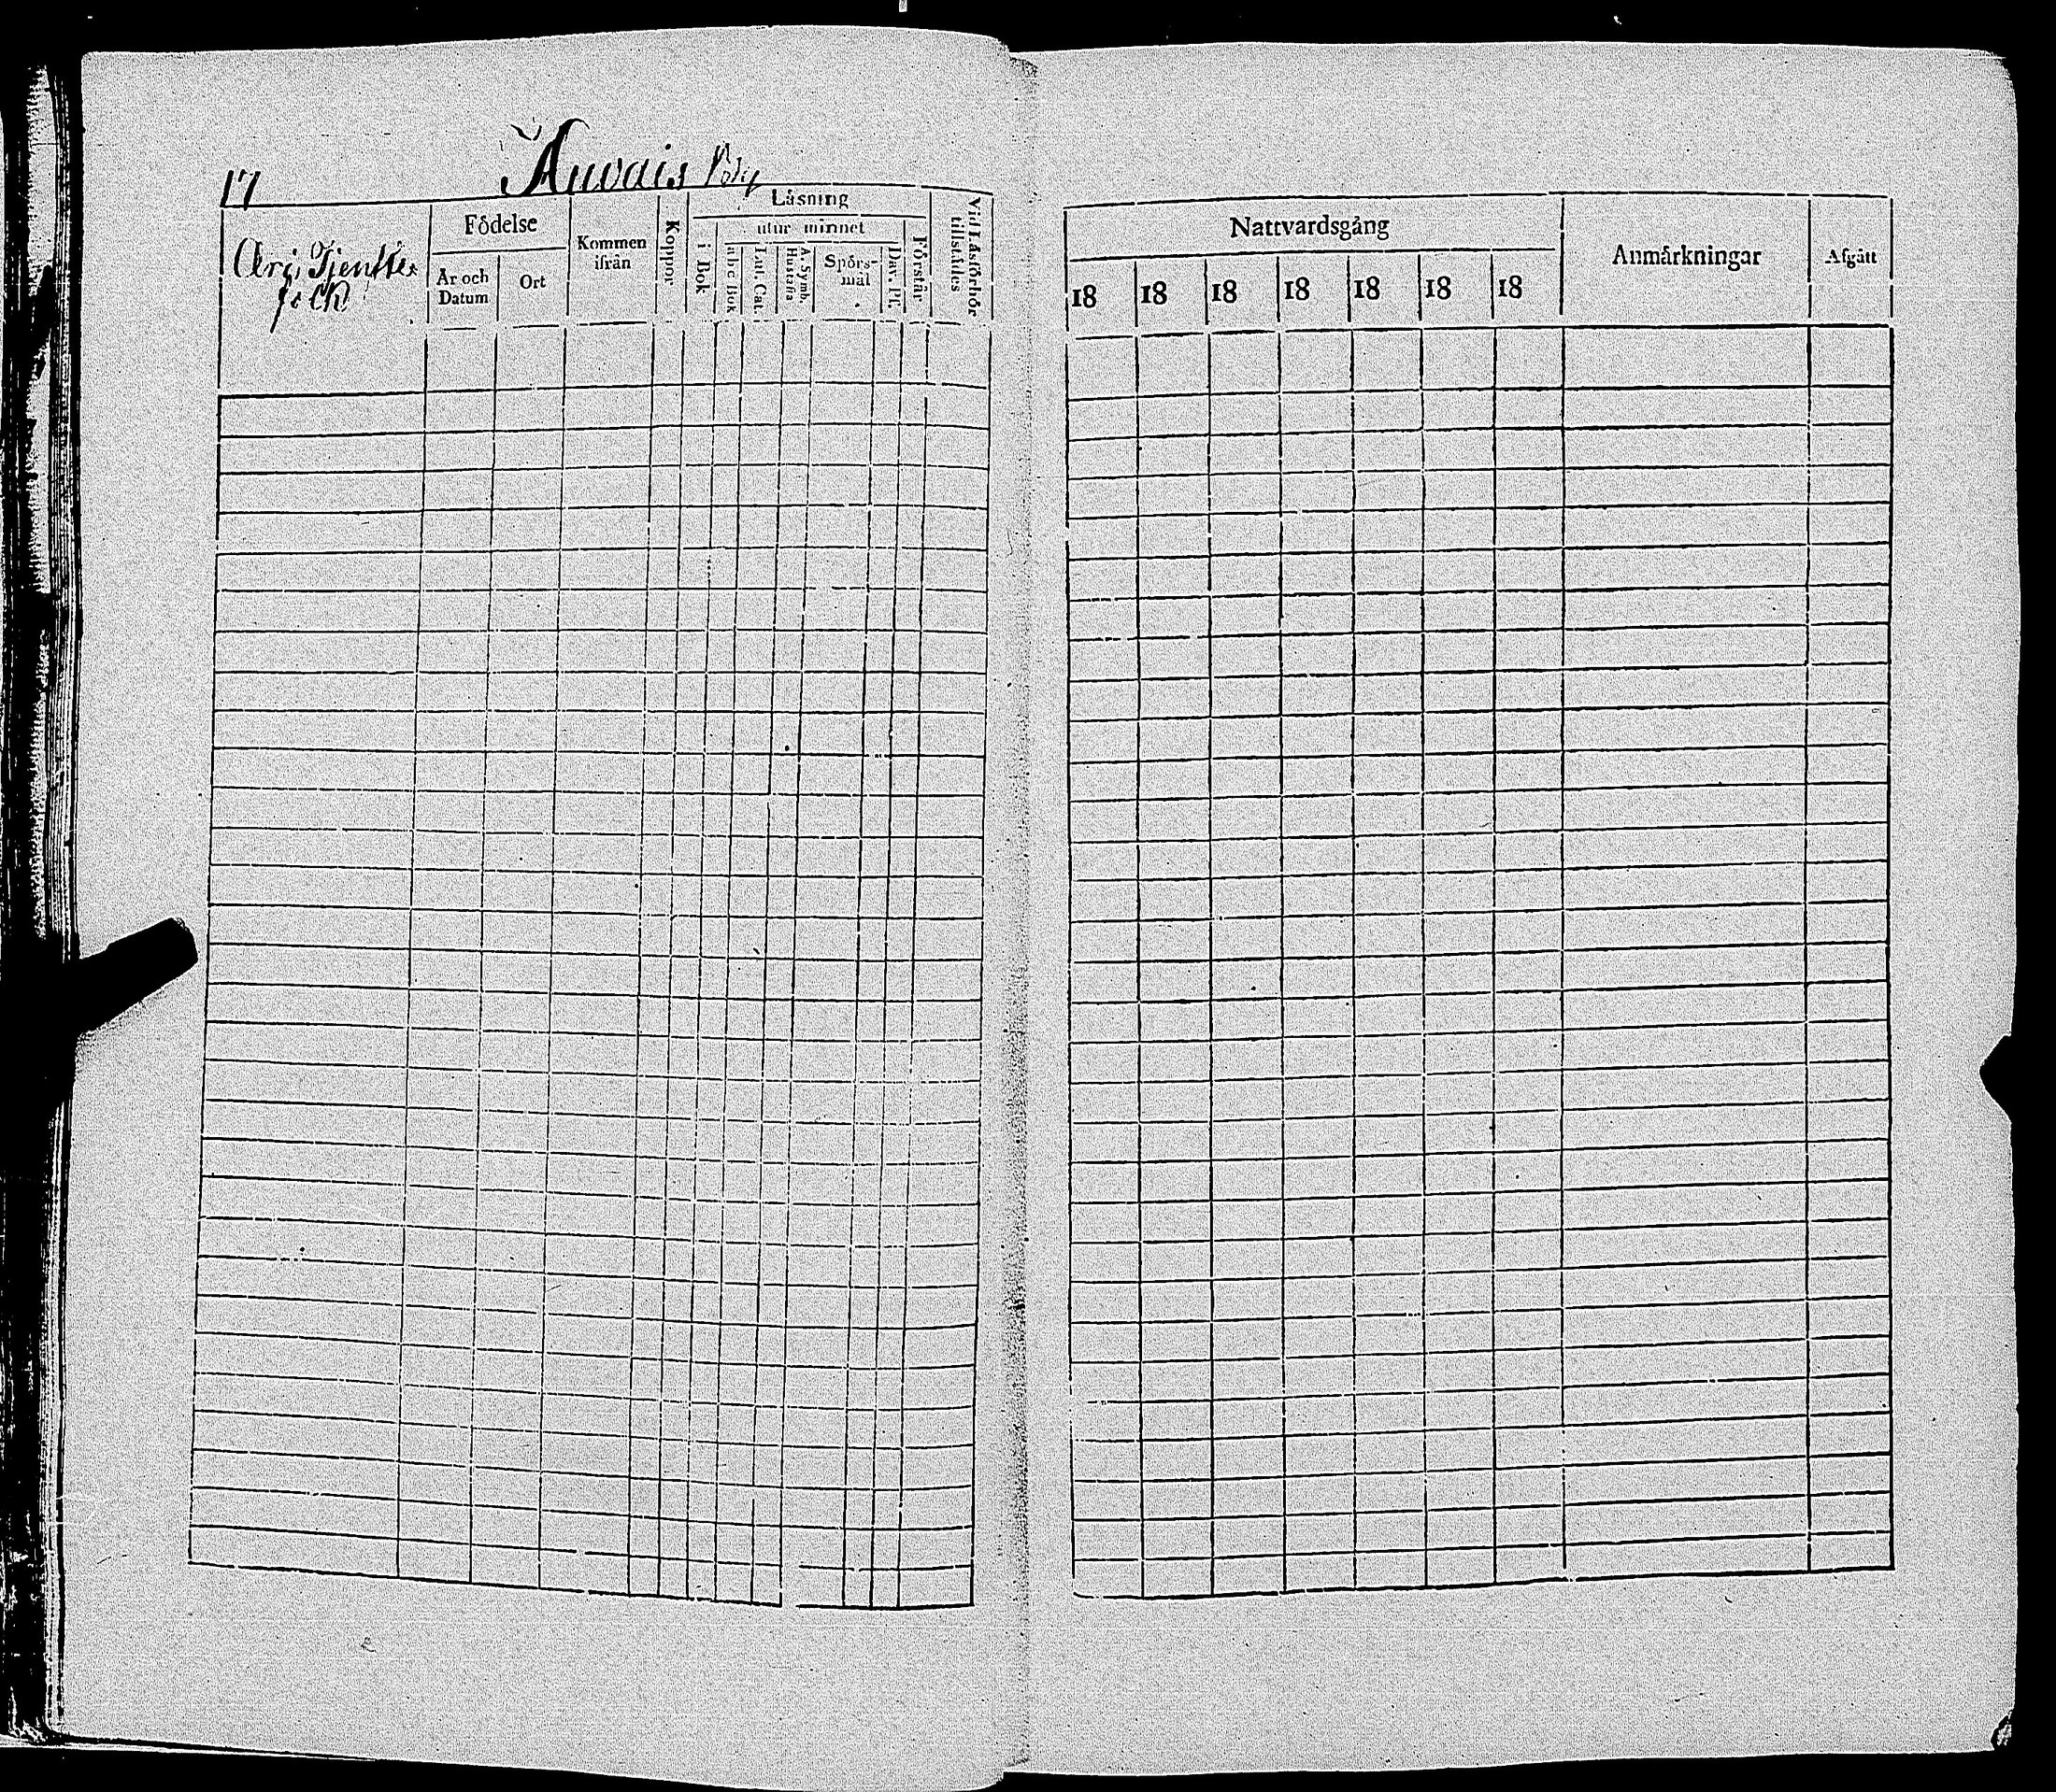 17
Äuvais By
Födelse
Kommen ifrån
Koppor
Läsning
Vid Läsförhör tillstädes
År och Datum
Ort
i Bok
utur minnet
Förstår
a b c Bok
Lut. Cat.
Hustafla
A. Symb.
Spörs-
mål
Dav. Ps.
Tjenste
folk
Nattvardsgång
Anmärkningar
Afgått
18 18 18 18 18 18 18